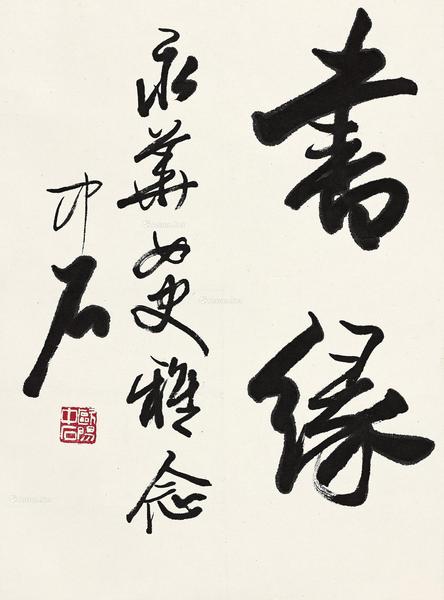 書緣
永華女史雅念
中石
歐陽中石